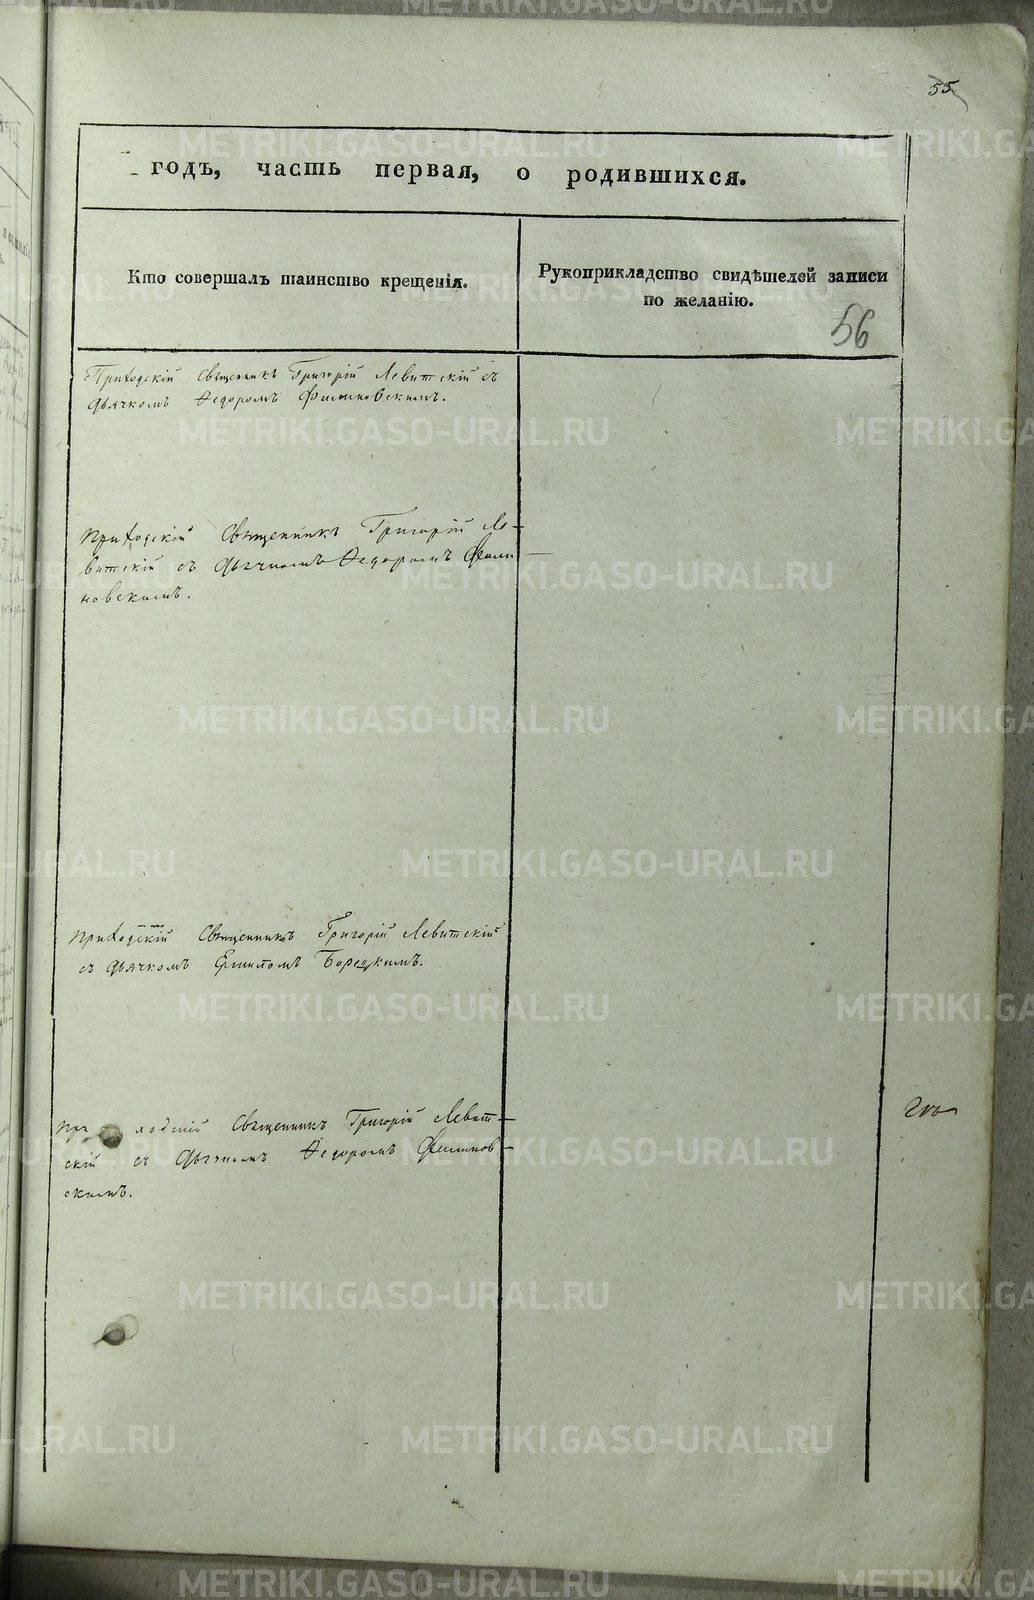 55.
годъ, часть первая, о родившихся.
Кто совершалъ таинство крещенія.
Рукоприкладство свидѣтелей записи
по желанію.
56
Приходскій Священникъ Григорій Левитскій съ
дьячкомъ Ѳедоромъ Филиновскимъ.
приходскій Священникъ Григорій Ле-
витскій съ дьячкомъ Ѳедоромъ Фили
новскимъ.
приходскій Священникъ Григорій Левитскій
съ дьячкомъ Борецкимъ.
приходскій Священникъ Григорій Левит-
скій съ дьячкомъ Ѳедоромъ Филинов-
скимъ.
METRIKI.GASO-URAL.RU